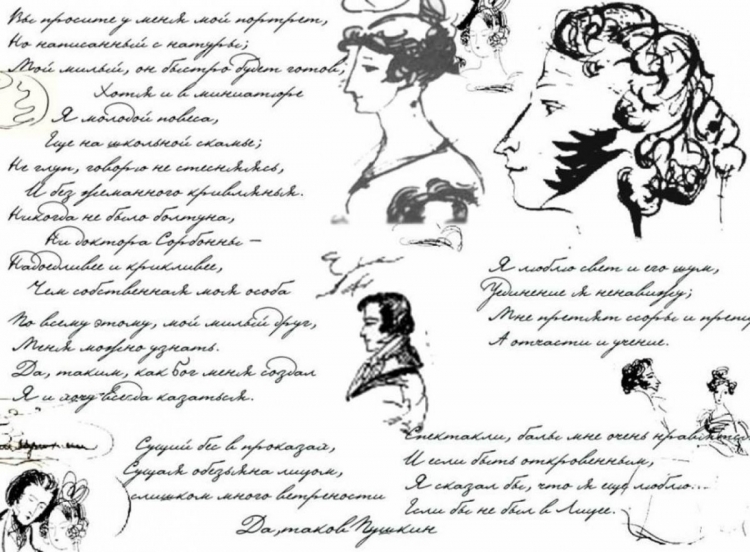 Вы просите у меня мой портрет,
Но написанный с натуры;
Мой милый, он быстро будет готов,
Хотя и в миниатюре
Я молодой повеса,
Еще на школьной скамье;
Не глуп, говорю не стесняясь,
И без жеманного кривлянья.
Никогда не было болтуна,
Ни доктора Сорбонны –
Надоедливее и крикливее,
Чем собственная моя особа
По всему этому, мой милый друг,
Меня можно узнать.
Да, таким, как Бог меня создал
Я и хочу всегда казаться.
Сущий бес в проказах,
Сущая обезьяна лицом,
слишком много ветрености
Да, таков Пушкин
Я люблю свет и его шум,
Уединение я ненавижу;
Мне претят ссоры и
А отчасти и учение.
Спектакли, балы мне очень нравятся
И если быть откровенным,
Я сказал бы, что я еще люблю...
Если бы не был в Лицее.